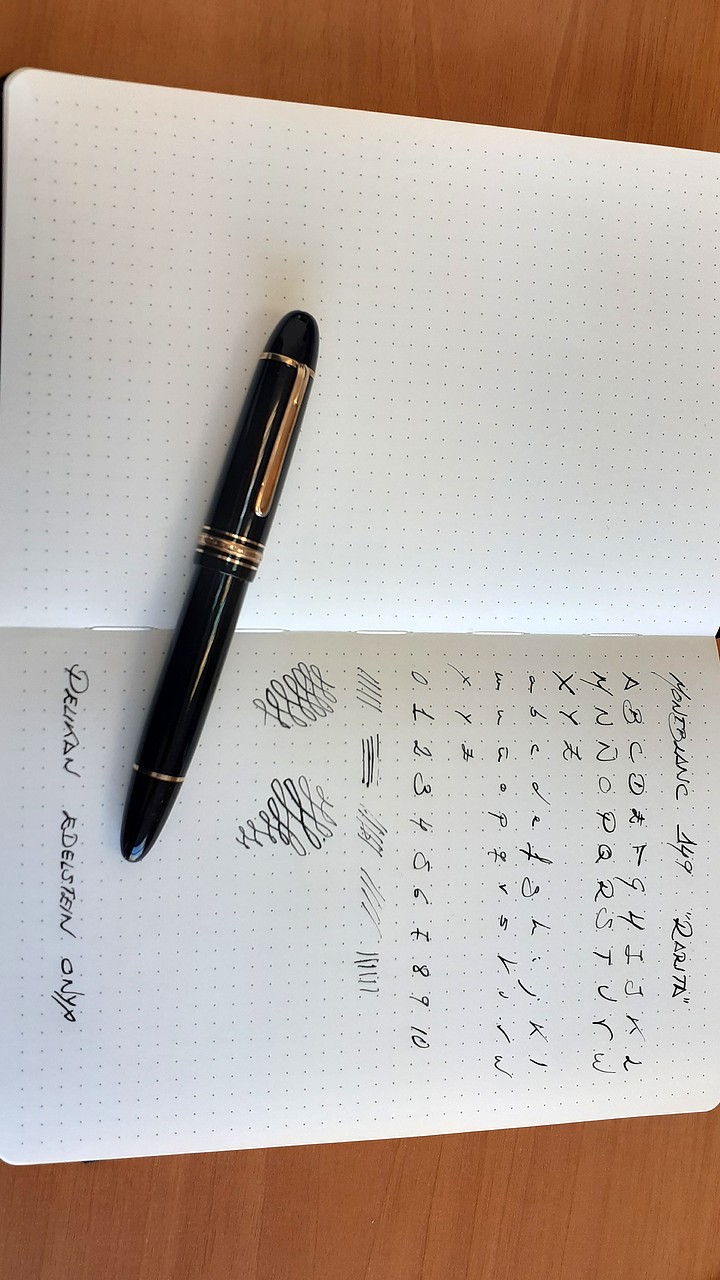 MONTBLANC 149 "RARITA"
A B C D E F G H I J K L
M N Ñ O P Q R S T U V W
X Y Z
a b c d e f g h i j k l
m n ñ o p q r s t u v w
x y z
0 1 2 3 4 5 6 7 8 9 10
PELIKAN EDELSTEIN ONYX